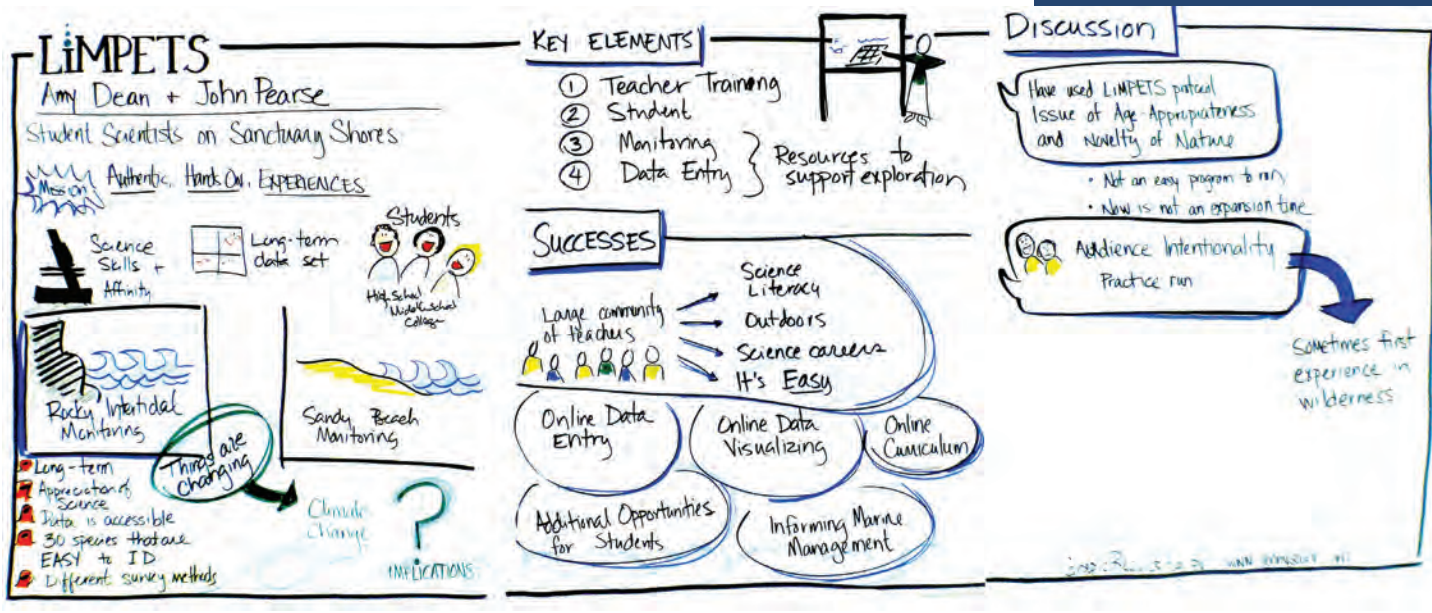 LiMPETS
Amy Dean + John Pearse
Student Scientists on Sanctuary Shores
Mission
Authentic, Hands On, EXPERIENCES
Science
Skills +
Affinity
Long-term
data set
Students
High School
Middle School
College
Rocky Intertidal
Monitoring
Sandy Beach
Monitoring
Things are
changing
Long-term
Appreciation of
Science
Data is accessible
30 species that are
EASY to ID
Different survey methods
Climate
Change
?
IMPLICATIONS
KEY ELEMENTS
1 Teacher Training
2 Student
3 Monitoring
4 Data Entry
Resources to
support exploration
SUCCESSES
Large community
of teachers
Science
Literacy
Outdoors
Science careers
It's Easy
Online Data
Entry
Online Data
Visualizing
Online
Curriculum
Additional Opportunities
for Students
Informing Marine
Management
Discussion
Have used LiMPETS protocol
Issue of Age-Appropriateness
and Novelty of Nature
• Not an easy program to run
• Now is not an expansion time
Audience Intentionality
Practice run
Sometimes first
experience in
wilderness